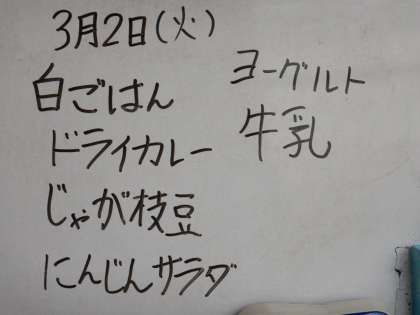 3月2日(火)
白ごはん
ドライカレー
じゃが枝豆
にんじんサラダ
ヨーグルト
牛乳